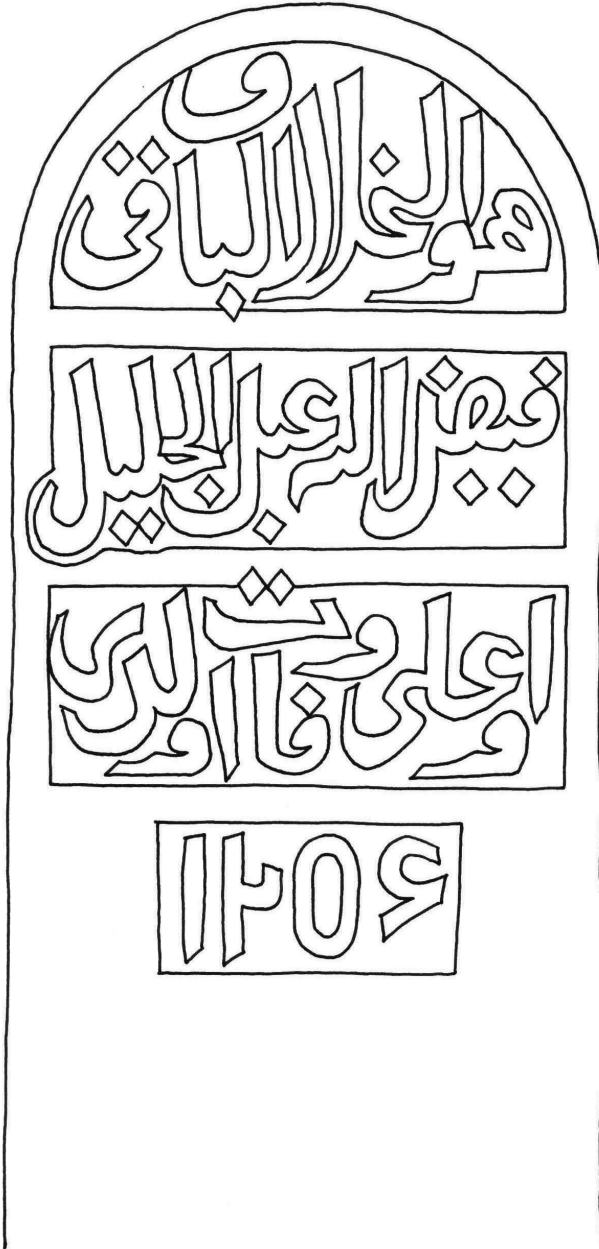 هو الخلاق الباقى
فيض الله عبد الجليل
اوعلى وفات اولدى
١٢٥۶